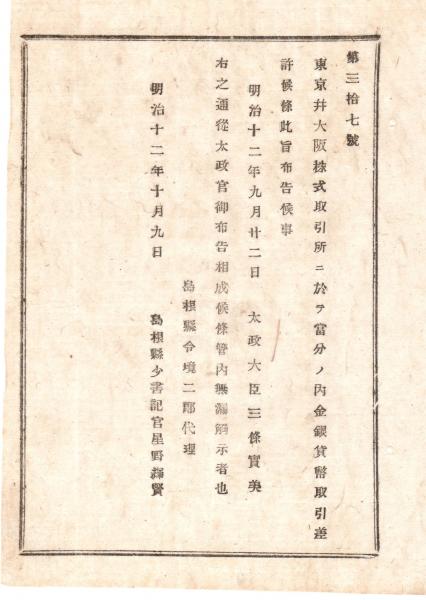 第三拾七號
東京幷大阪株式取引所ニ於テ當分ノ內金銀貨幣取引差
許候條此旨布告候事
明治十二年九月廿二日 太政大臣三條實美
右之通從太政官御布告相成候條管內無漏觸示者也
島根縣令境二郎代理
明治十二年十月九日 島根縣少書記官星野輝賢